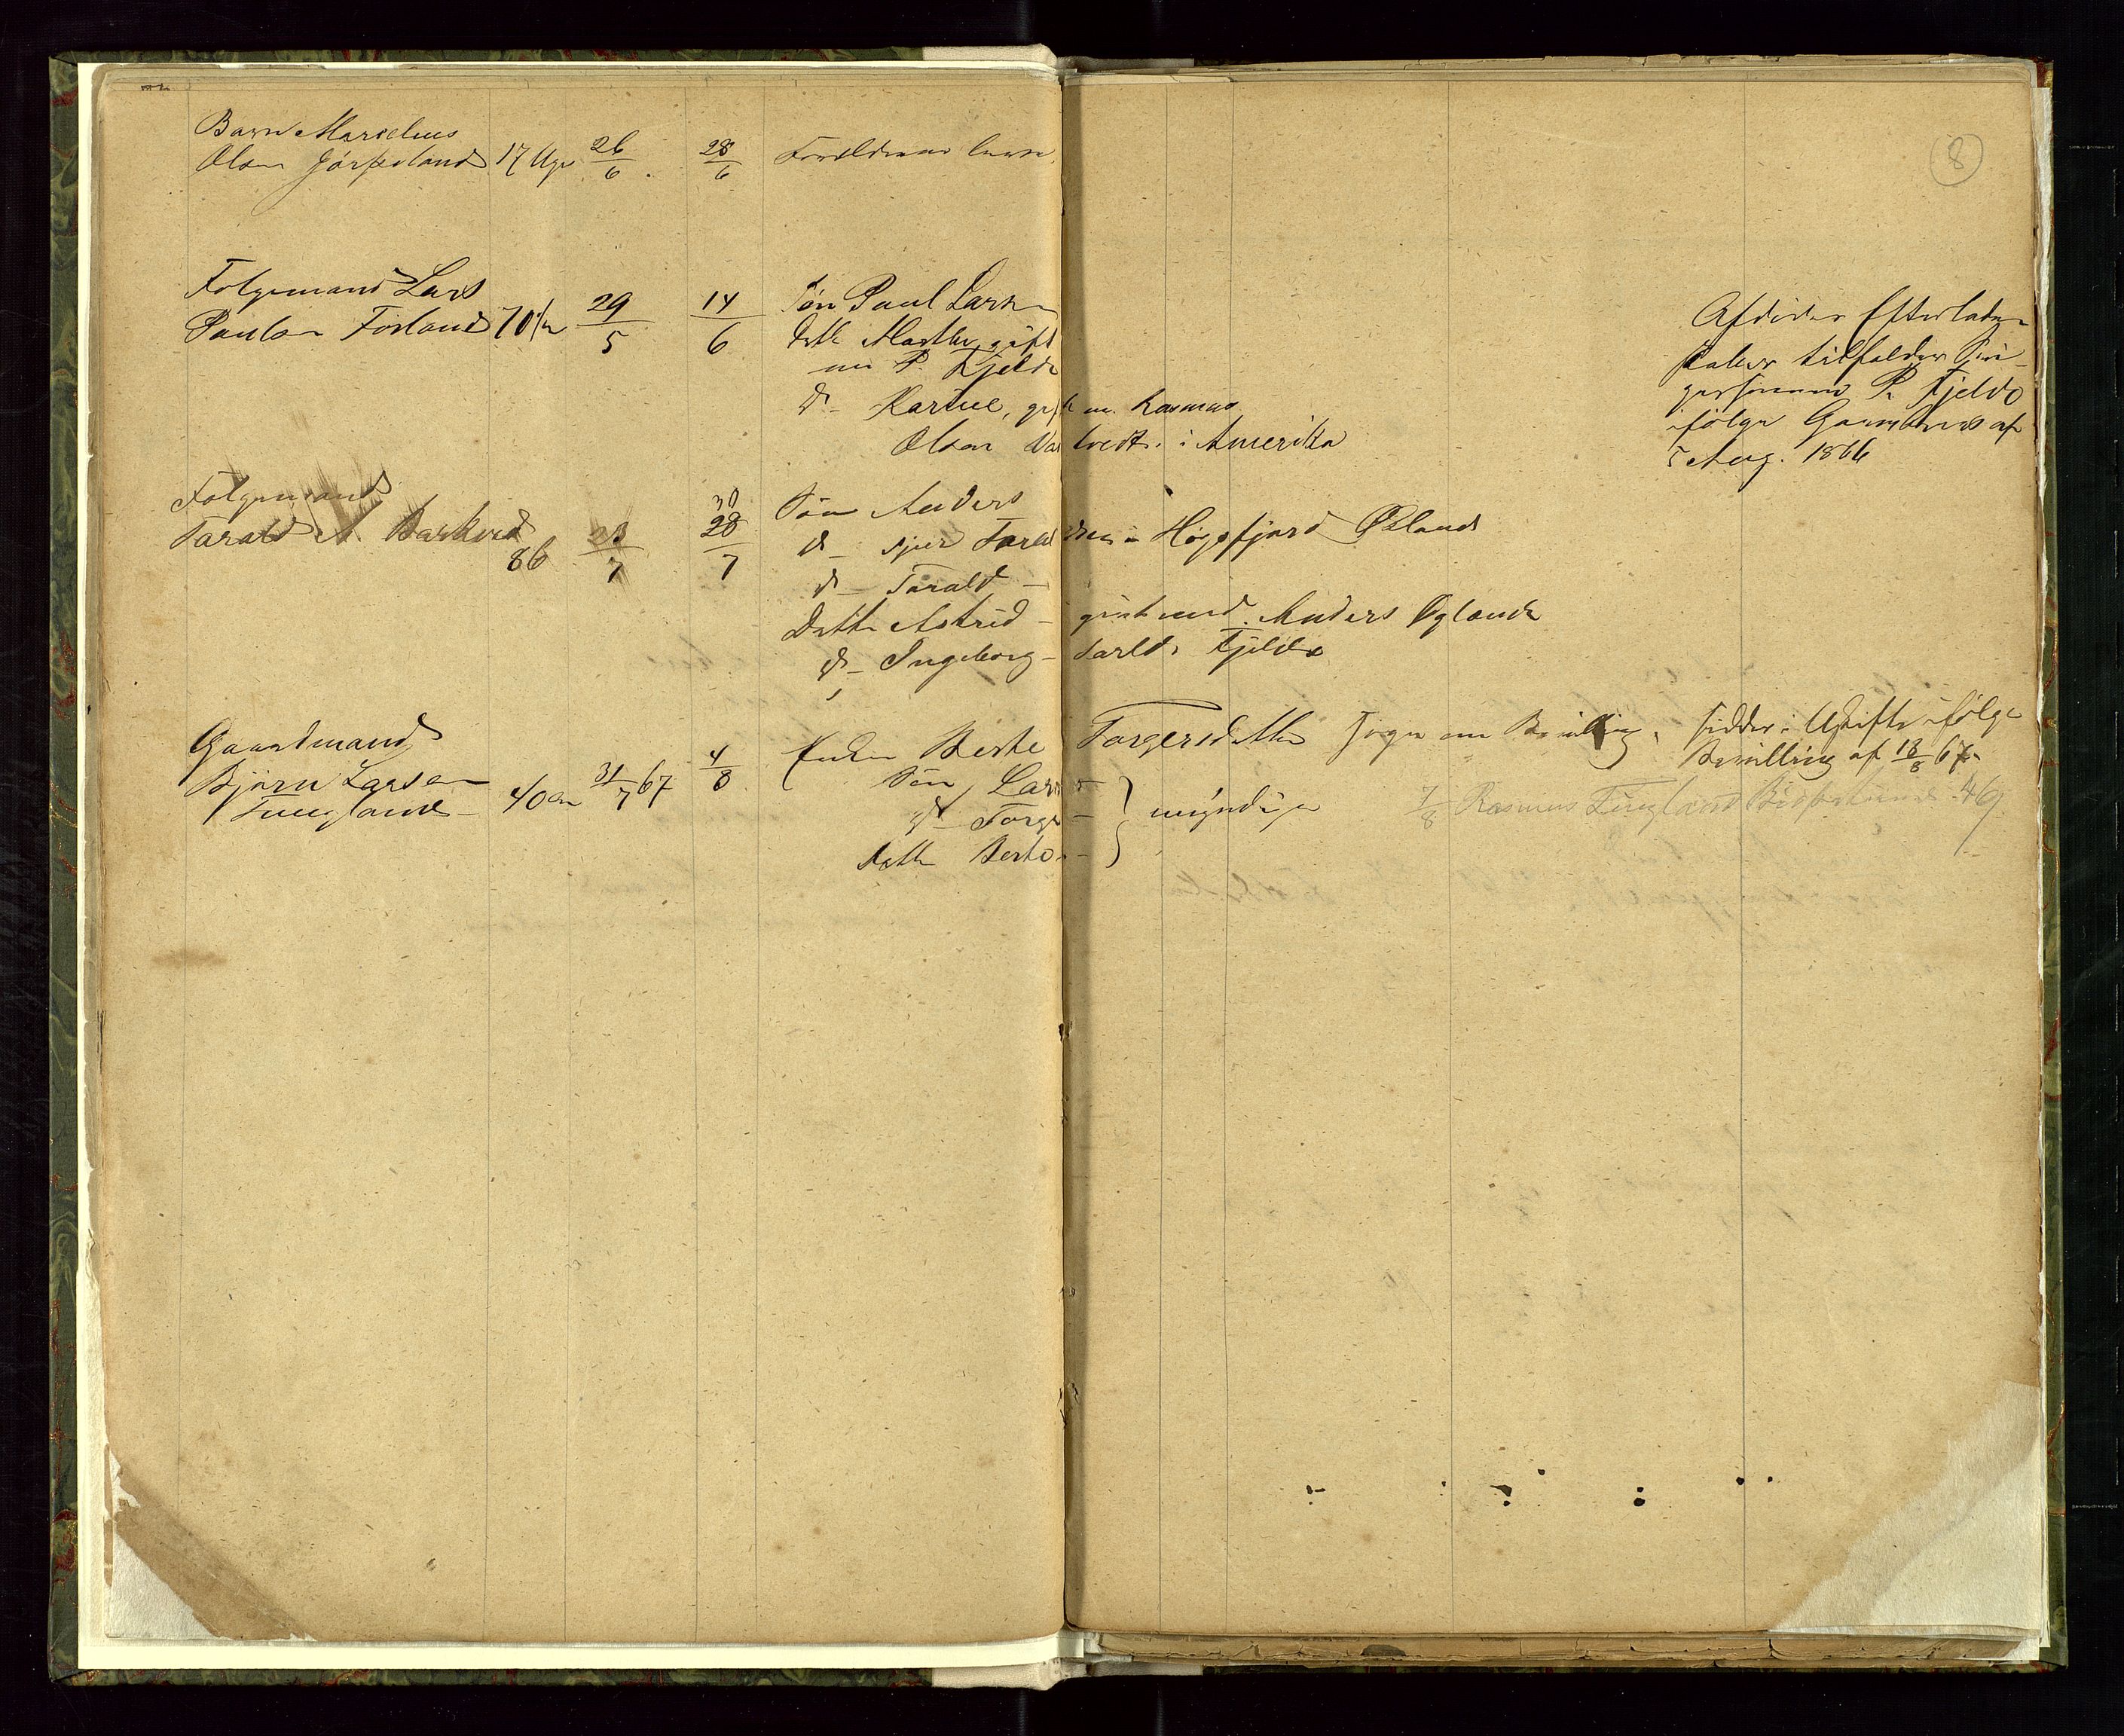 8
Barn Marselius
Olsen Jørpeland 17 Uger 26/6. 28/6 Forældrene lever.
Følgemand Lars
Paulsen Førland 70 29/5 14/6 Søn Paul Larsen
Datt. Marthe, gift
m P. Fjelde
d- Karine, gift m. Rasmus
Olsen i Amerika
Afdødes Efterladen-
skaber tilfalder Svi-
gersønnen P. Fjelde
ifølge Gavebrev af
5 Aug. 1866
Følgemand
Tarald A. Barkved
86 23/7 30 28/7 Søn Anders
d- Sjur Taraldsen i Høgsfjord
d- Tarald -
Datt. Astrid - gift med Anders Øglænd
d- Ingeborg - Tarald. Fjelde
Gaardmand
Bjørn Larsen
Tungland - 40 31/7 67 4/8 Enken Berte Torgersdatter søger om Bevilling, sidder i Uskifte ifølge
Bevilling af 18/8 67.
Søn Lars -
d- Torger -
Datt. Berte - } myndige
7/8 Rasmus Tungland 46